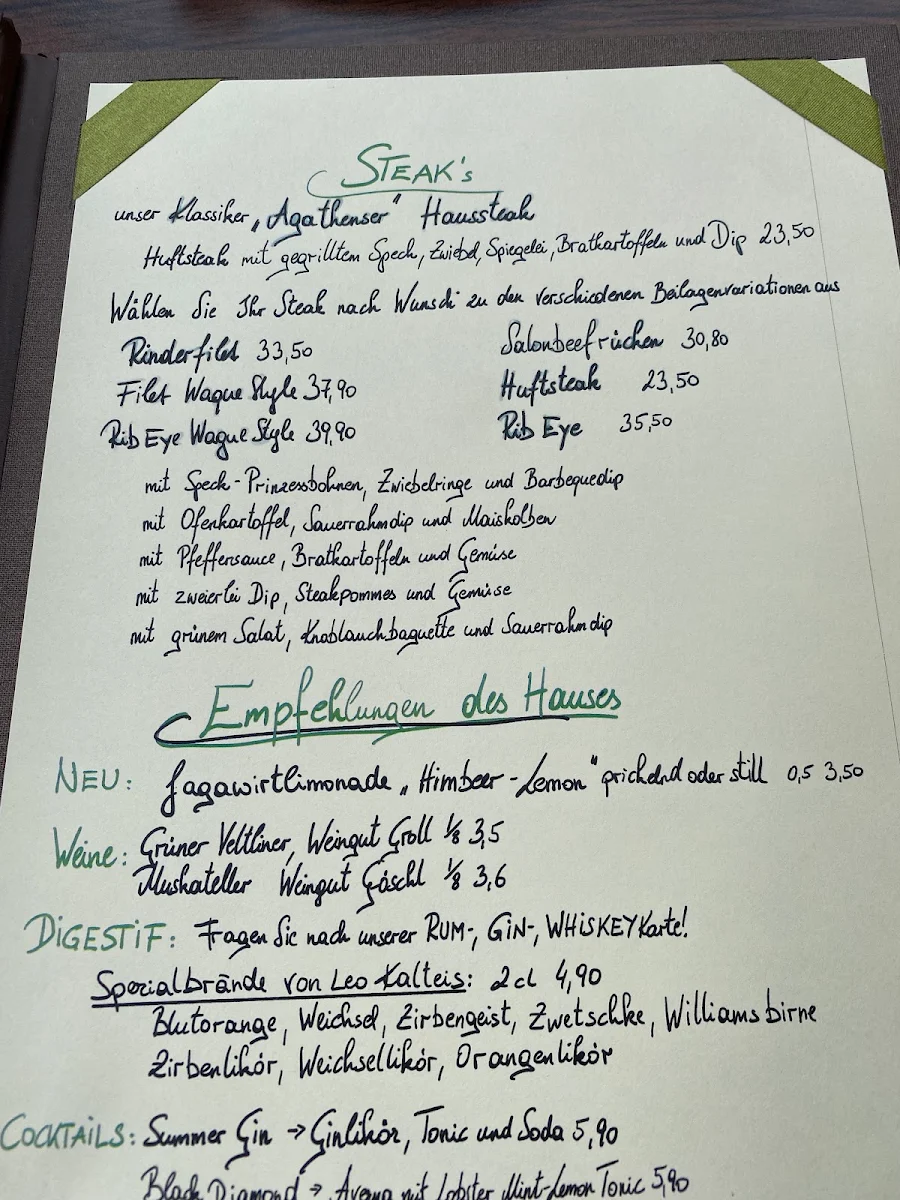 STEAK's
unser Klassiker „Agathenser" Haussteak
Huftsteak mit gegrilltem Speck, Zwiebel, Spiegelei, Bratkartoffeln und Dip 23,50
Wählen Sie Ihr Steak nach Wunsch zu den verschiedenen Beilagenvariationen aus
Rinderfilet 33,50
Salonbeefrücken 30,80
Filet Wague Style 37,90
Huftsteak 23,50
Rib Eye Wague Style 39,90
Rib Eye 35,50
mit Speck-Prinzessbohnen, Zwiebelringe und Barbequedip
mit Ofenkartoffel, Sauerrahmdip und Maiskolben
mit Pfeffersauce, Bratkartoffeln und Gemüse
mit zweierlei Dip, Steakpommes und Gemüse
mit grünem Salat, Knoblauchbaguette und Sauerrahmdip
Empfehlungen des Hauses
NEU: Jagawirtlimonade „Himbeer-Lemon" prickelnd oder still 0,5 3,50
Weine: Grüner Veltliner, Weingut Groll 1/8 3,5
Muskateller Weingut Göschl 1/8 3,6
DIGESTIF: Fragen Sie nach unserer RUM-, GIN-, WHISKEY Karte!
Spezialbrände von Leo Kalteis: 2cl 4,90
Blutorange, Weichsel, Zirbengeist, Zwetschke, Williamsbirne
Zirbenlikör, Weichsellikör, Orangenlikör
COCKTAILS: Summer Gin → Ginlikör, Tonic und Soda 5,90
Black Diamond → Averna mit Lobster Mint-Lemon Tonic 5,90